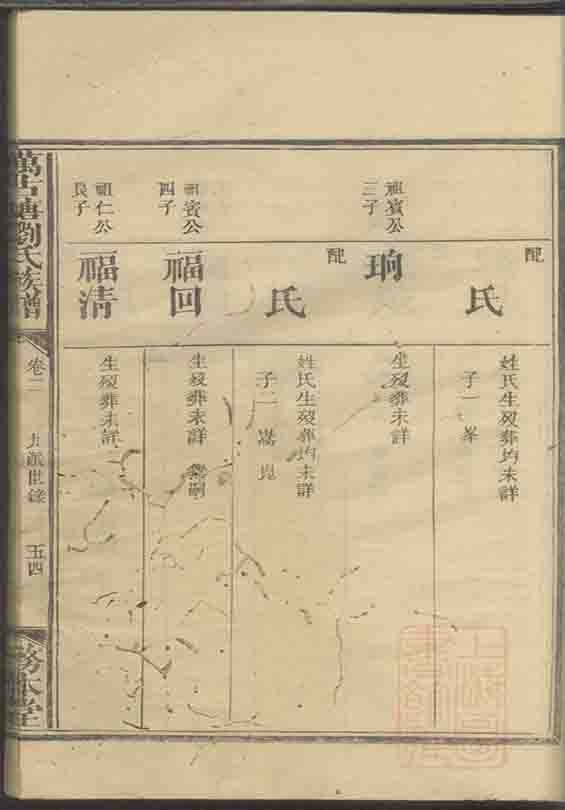 配
氏
姓氏生歿葬均未詳
子一峯
祖賓公
三子
珦
生歿葬未詳
配
氏
姓氏生歿葬均未詳
子二嵩崑
祖賓公
四子
福回
生歿葬未詳
嗣
祖仁公
長子
福清
生歿葬未詳
萬古塘劉氏族譜
卷二
世錄
五四
務本堂